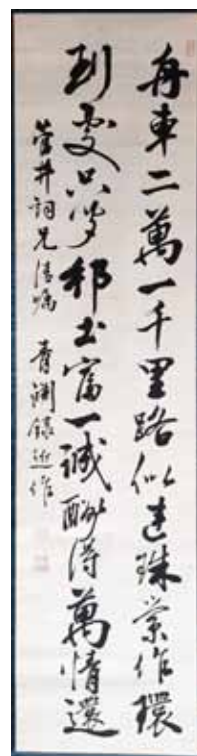 舟車二萬一千里路似連珠縈作環
到處只夢邦土富一誠酬得萬情還
菅井詞兄清嘱 青淵録近作